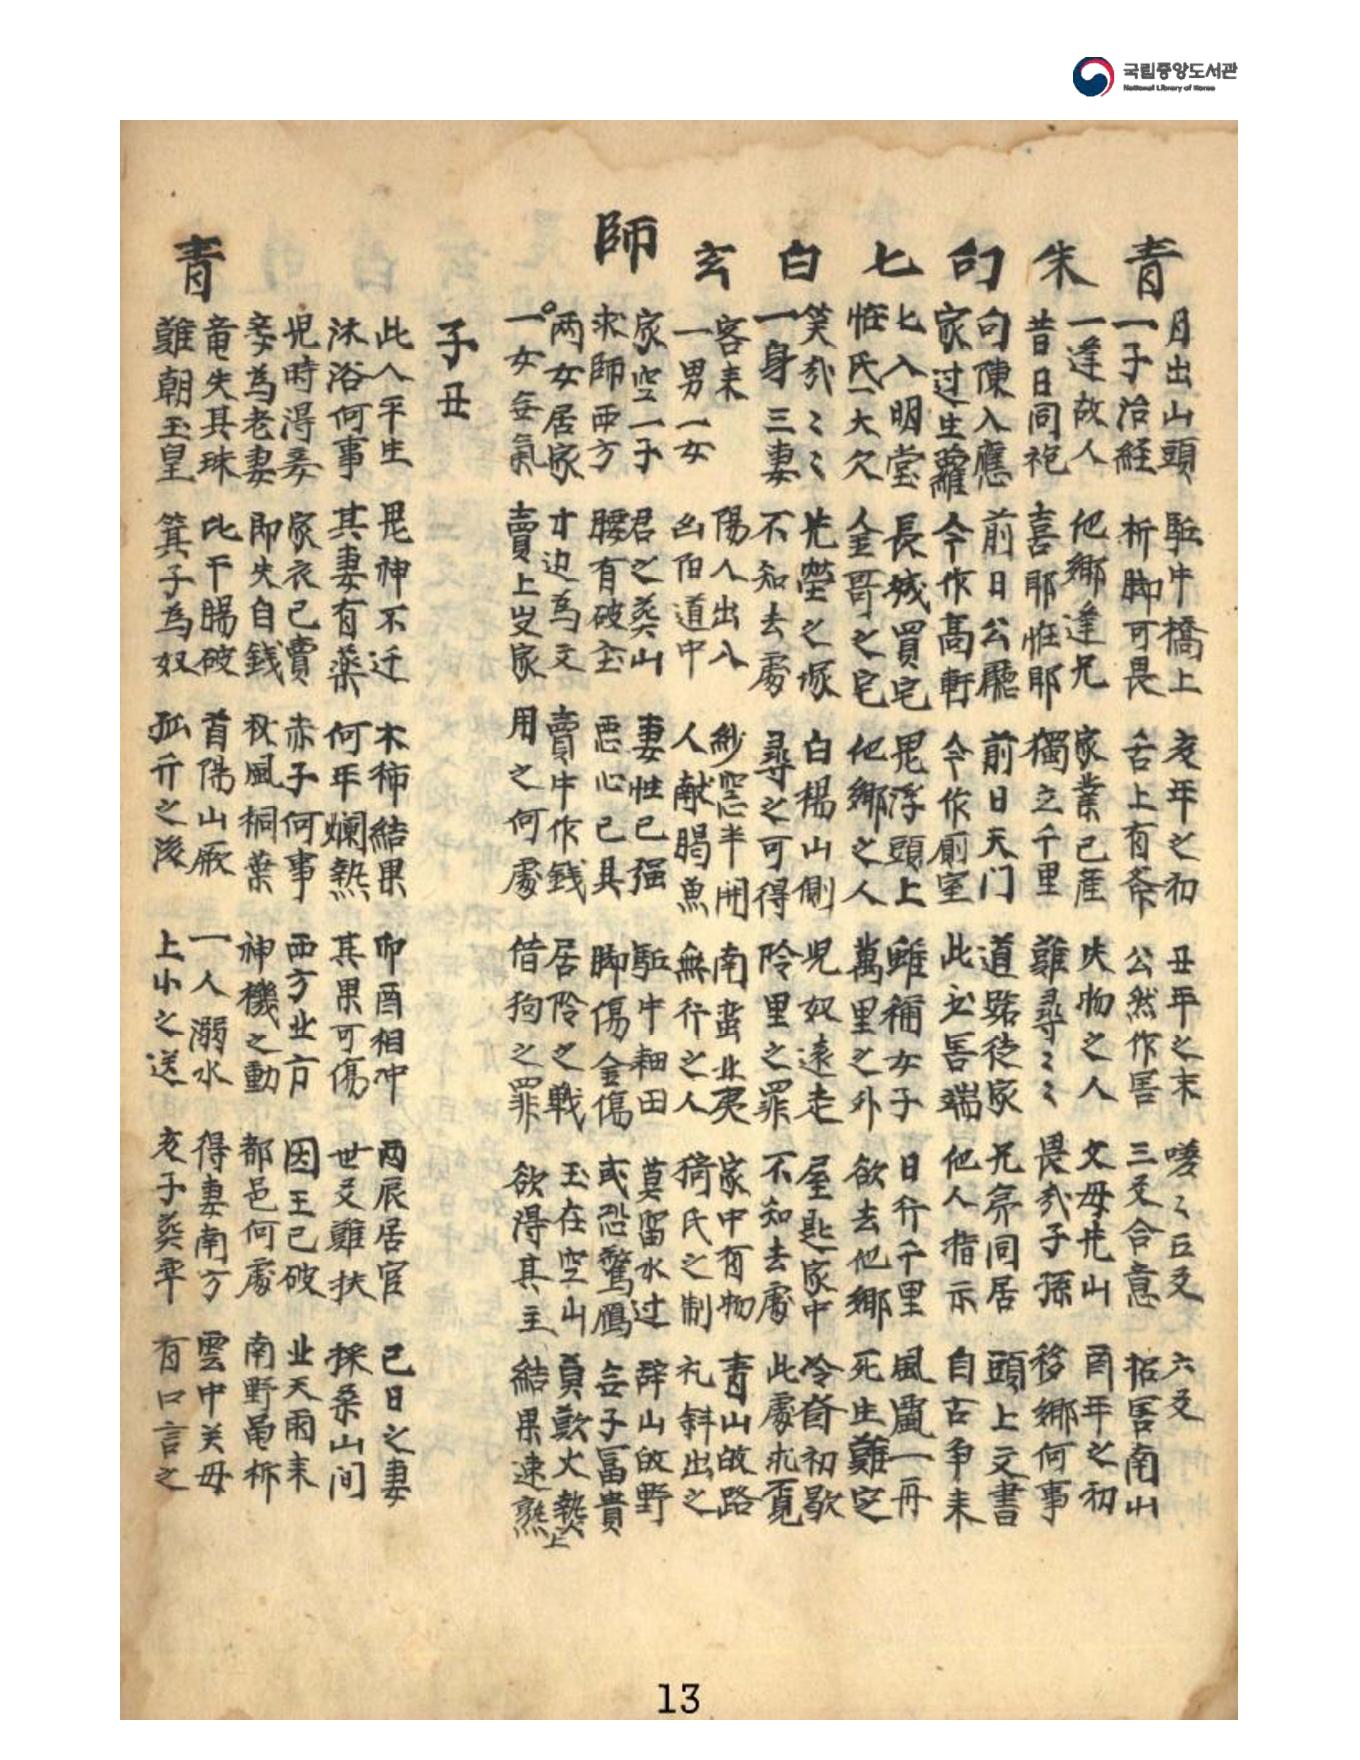 青 月出山頭 駈牛橋上 亥年之初 丑年之末 嘆〻五爻 六爻
一子治経 折脚可畏 舌上有斧 公然作害 三爻合意 招害南山
朱 一逢故人 他鄉逢兄 家業已産 失物之人 父母先山 酉年之初
昔日同袍 喜耶恠耶 獨立千里 難尋〻〻 畏哉子孫 移鄉何事
句 句陳入應 前日公廳 前日天门 道路徒家 兄弟同居 頭上文書
家过生離 今作高軒 今作廁室 此 害端 他人指示 自古争来
七 七入明堂 長城買宅 鬼浮頭上 雖稱女子 日行千里 風 一再
恠氏一大欠 金哥之宅 他鄉之人 萬里之外 欲去他鄉 死生難定
白 笑哉〻〻 先塋之塚 白楊山側 児奴遠走 屋匙家中 冷 初歇
一身三妻 不知去處 尋之可得 阾里之罪 不知去處 此處求覔
玄 客来 陽人出入 紗窓半開 南蛮北夷 家中有物 青山故路
一男一女 幺伯道中 人献 魚 無行之人 猗氏之制 礼斜出之
師 家空一子 君之葬山 妻性已强 駈牛耕田 莫留水过 辞山故野
求師西方 腰有破 惡心已具 脚傷金傷 或恐驚鴈 無子冨貴
两女居家 才边為文 賣牛作銭 居阾之戦 玉在空山 莫歎火熱上
一女無氣 賣上 家 用之何處 借狗之罪 欲得其主 結果速熟
子丑
此人平生 鬼神不迁 木柿結果 卯酉相冲 两辰居官 已日之妻
沐浴何事 其妻有薬 何年爛熟 其果可傷 世爻難扶 採桑山间
児時得妾 家衣已賣 赤子何事 西方业方 因王已破 业天雨来
妾為老妻 即失自銭 秋風桐葉 神機之動 都邑何處 南野黽柝
青 竜失其珠 比干腸破 首陽山厥 一人溺水 得妻南方 雲中关毋
難朝玉皇 箕子為奴 孤介之後 上小之送 亥子葬平 有口言之
13
국립중앙도서관
National Library of Korea